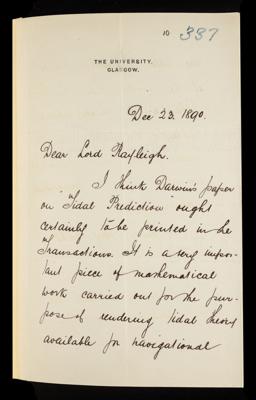 10 337
THE UNIVERSITY,
GLASGOW.
Dec 23. 1890.
Dear Lord Rayleigh.
I think Darwin's paper
on "Tidal Prediction" ought
certainly to be printed in the
Transactions. It is a very impor-
tant piece of mathematical
work carried out for the pur-
pose of rendering tidal theory
available for navigational